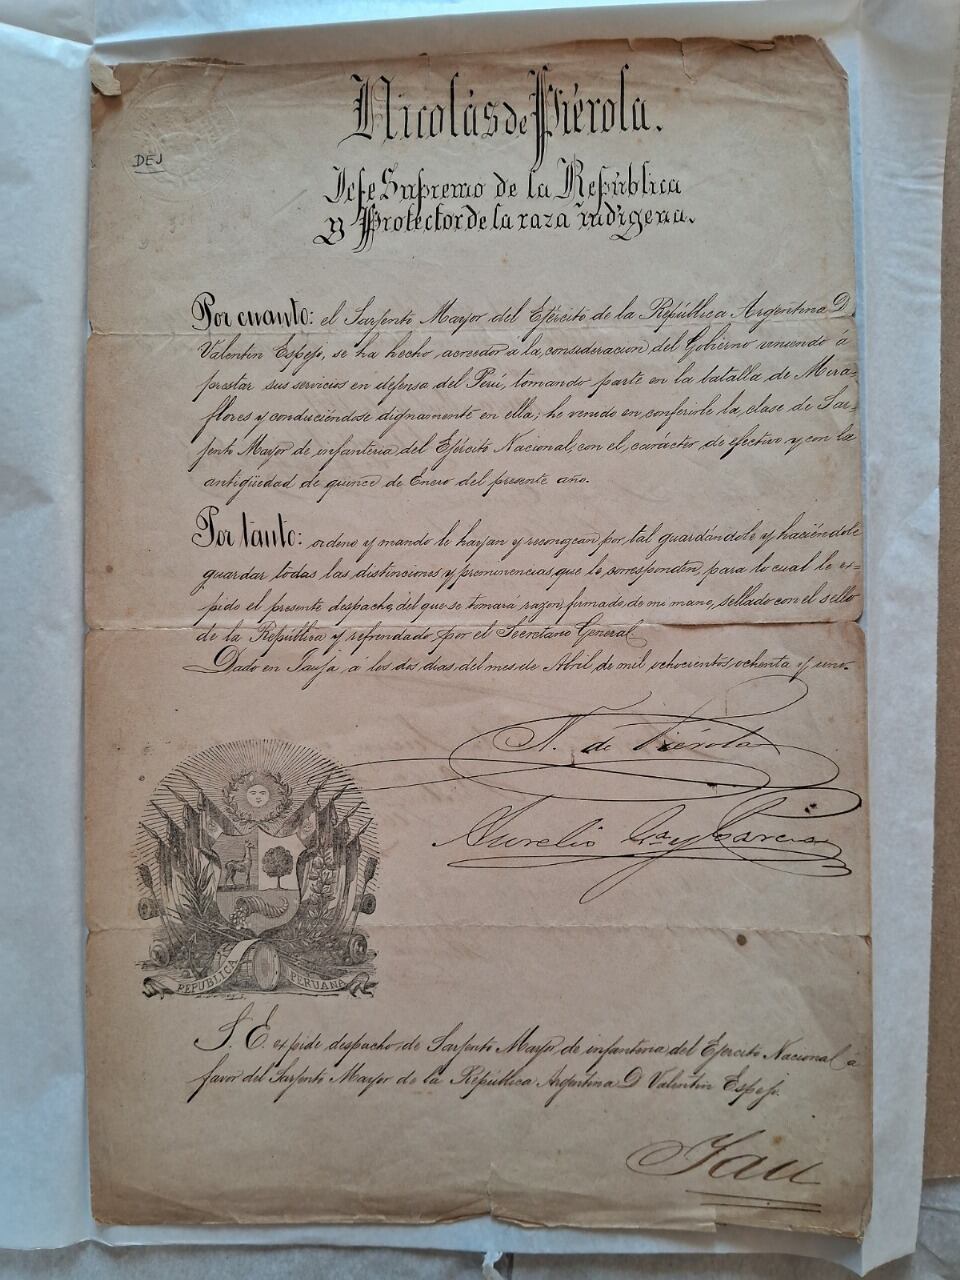 Nicolás de Piérola.
DEJ
Jefe Supremo de la República
y Protector de la raza indígena.
Por cuanto: el Sargento Mayor del Ejército de la República Argentina D.
Valentin Espejo, se ha hecho acreedor a la consideracion del Gobierno veniendo á
prestar sus servicios en defensa del Perú, tomando parte en la batalla de Mira-
flores y conduciéndose dignamente en ella; he venido en conferirle la clase de Sar-
gento Mayor de infanteria del Ejército Nacional, con el carácter de efectivo y con la
antigüedad de quince de Enero del presente año.
Por tanto: ordeno y mando le hayan y reconozcan por tal guardándole y haciéndole
guardar todas las distinciones y preminencias que le corresponden, para lo cual le ex-
pido el presente despacho, del que se tomará razon, firmado de mi mano, sellado con el sello
de la República y refrendado por el Secretario General.
Dado en Jauja á los dos dias del mes de Abril de mil ochocientos ochenta y uno.
N. de Piérola
Aurelio Ga. y Garcia
REPUBLICA PERUANA
S. E. expide despacho de Sargento Mayor de infanteria del Ejercito Nacional á
favor del Sargento Mayor de la República Argentina D Valentin Espejo.